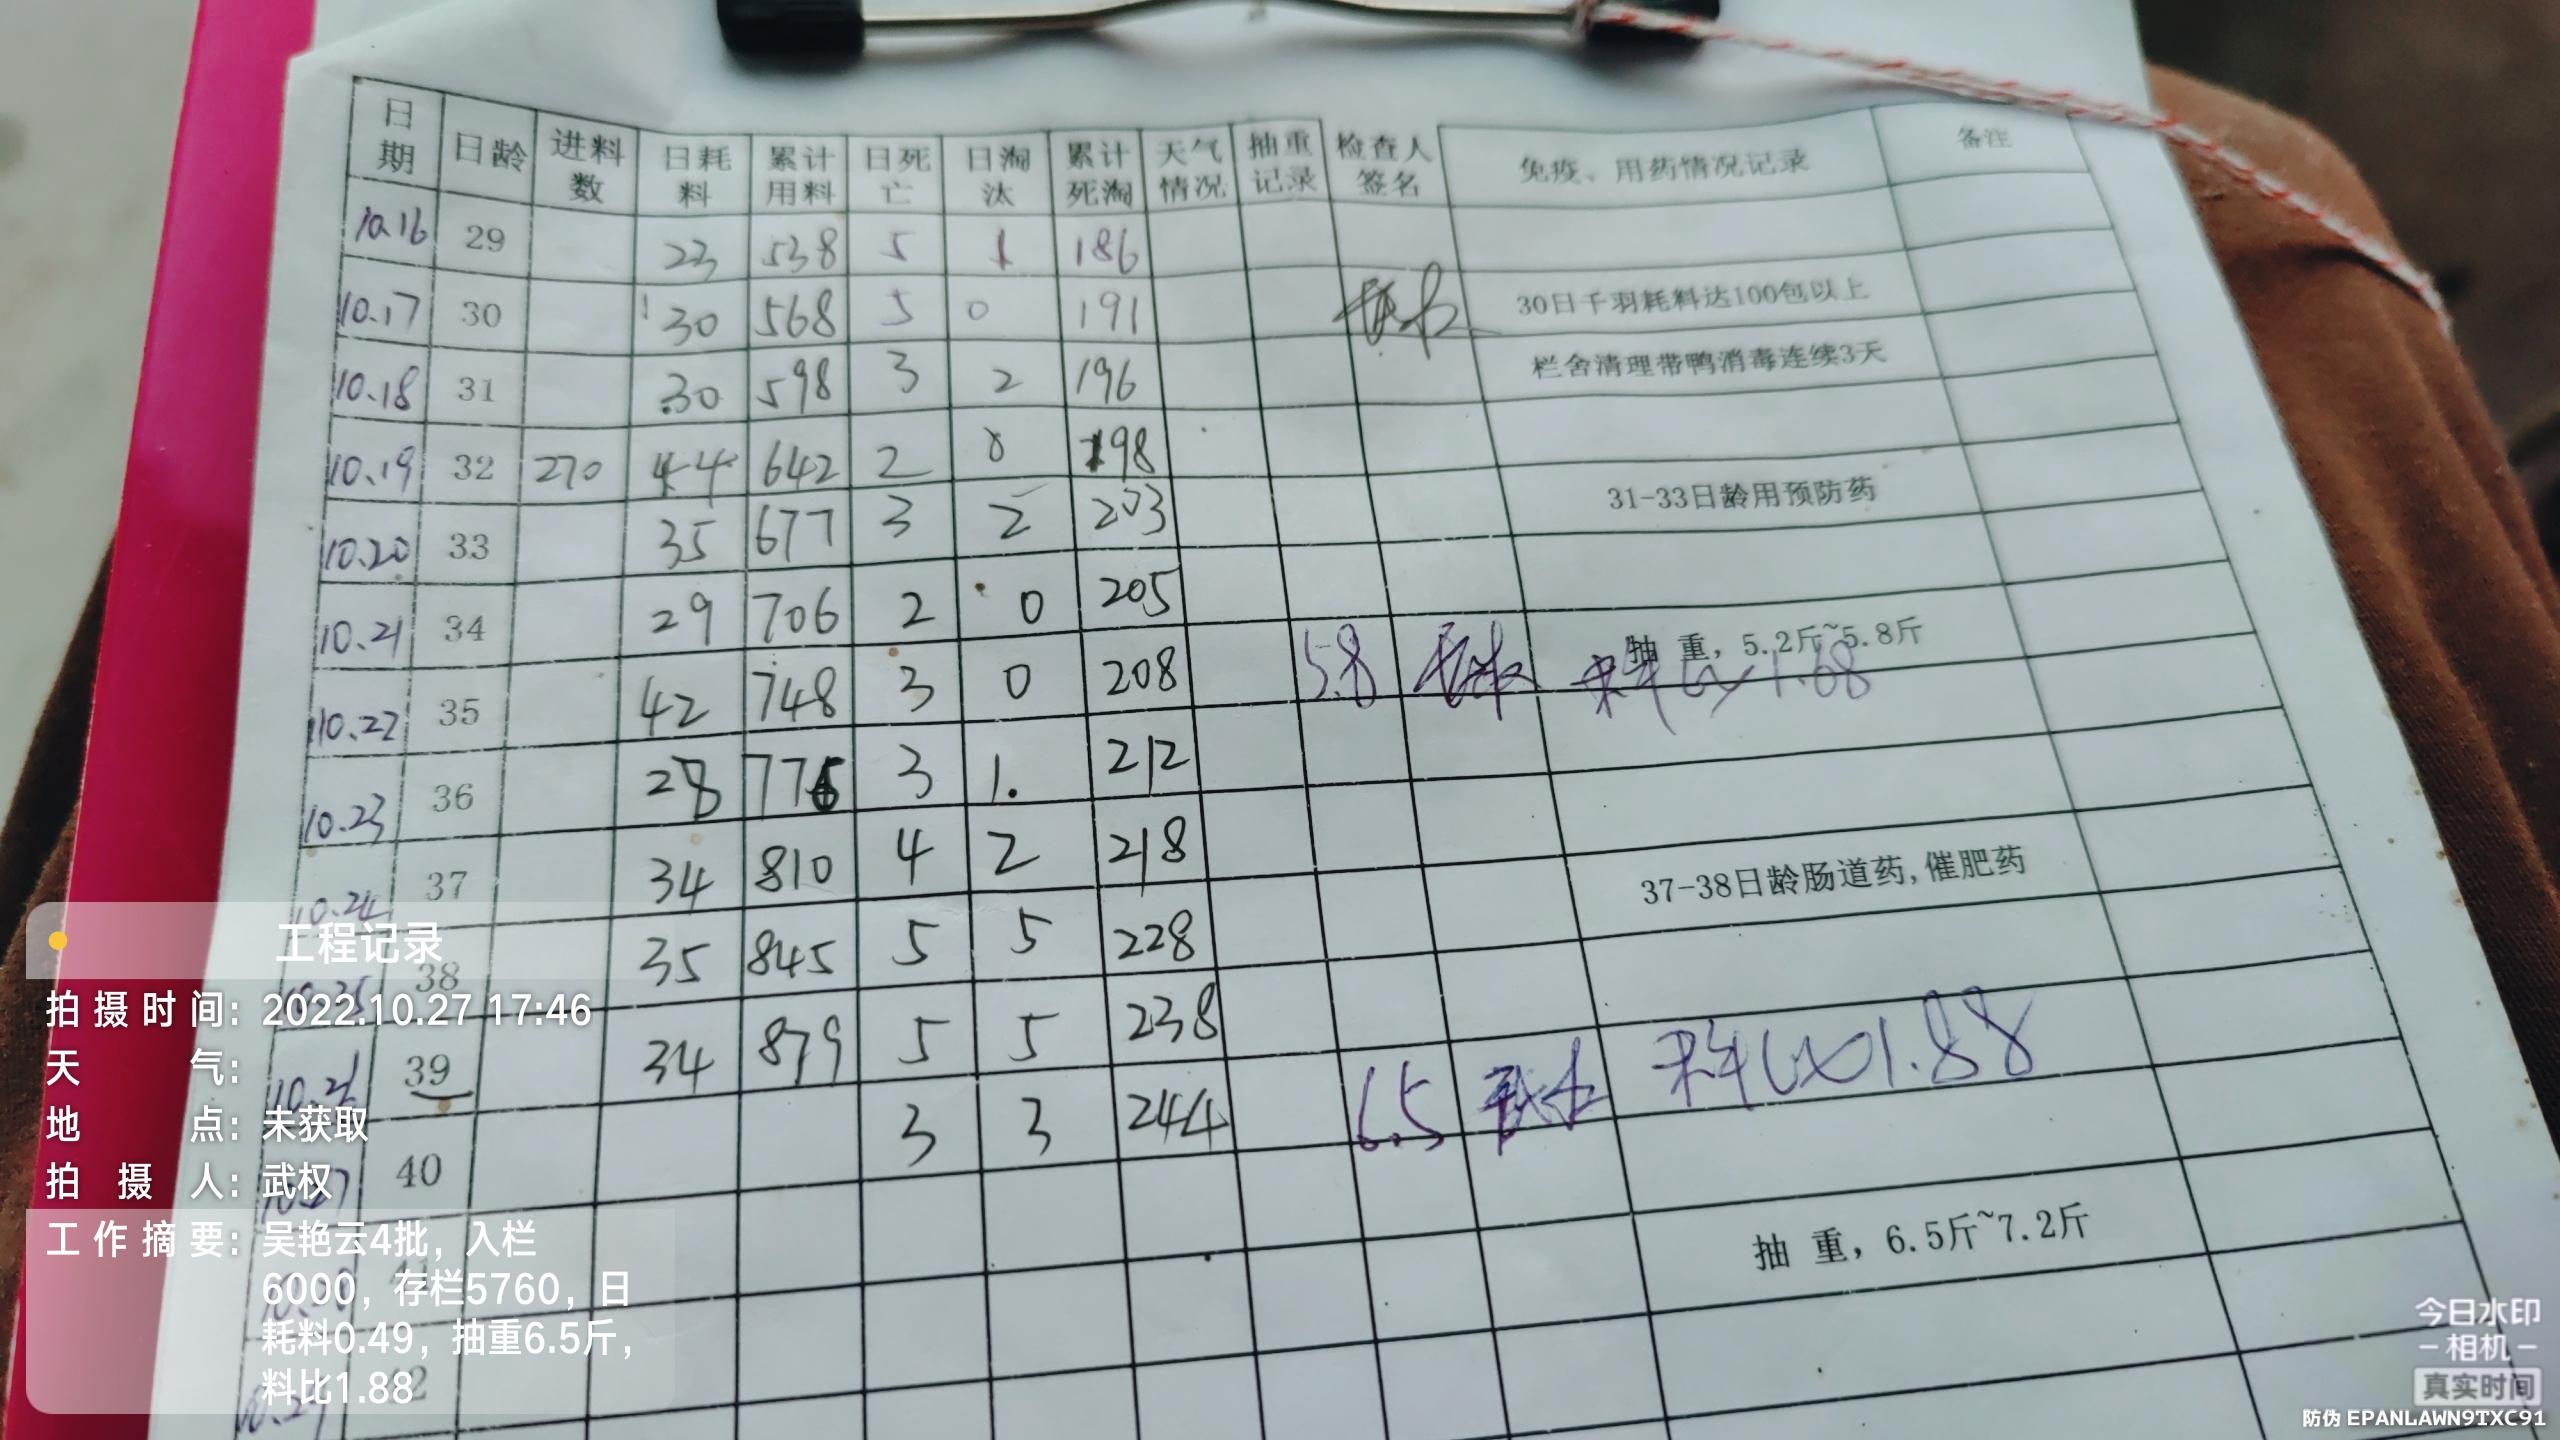 日期 日龄 进料数 日耗料 累计用料 日死亡 日淘汰 累计死淘 天气情况 抽重记录 检查人签名 免疫、用药情况记录 备注
10.16 29 23 538 5 1 186
10.17 30 30 568 5 0 191 30日千羽耗料达100包以上
10.18 31 30 598 3 2 196 栏舍清理带鸭消毒连续3天
10.19 32 270 44 642 2 0 198
10.20 33 35 677 3 2 203 31-33日龄用预防药
10.21 34 29 706 2 0 205
10.22 35 42 748 3 0 208 5.8 抽 重，5.2斤~5.8斤
料比 1.68
10.23 36 28 776 3 1. 212
10.24 37 34 810 4 2 218
10.25 38 35 845 5 5 228 37-38日龄肠道药,催肥药
10.26 39 34 879 5 5 238
10.27 40 3 3 244 6.5 料比1.88
抽 重，6.5斤~7.2斤
工程记录
拍摄时间：2022.10.27 17:46
天气：
地点：未获取
拍摄人：武权
工作摘要：吴艳云4批，入栏
6000，存栏5760，日
耗料0.49，抽重6.5斤，
料比1.88
今日水印
-相机-
真实时间
防伪 EPANLAWN9TXC91